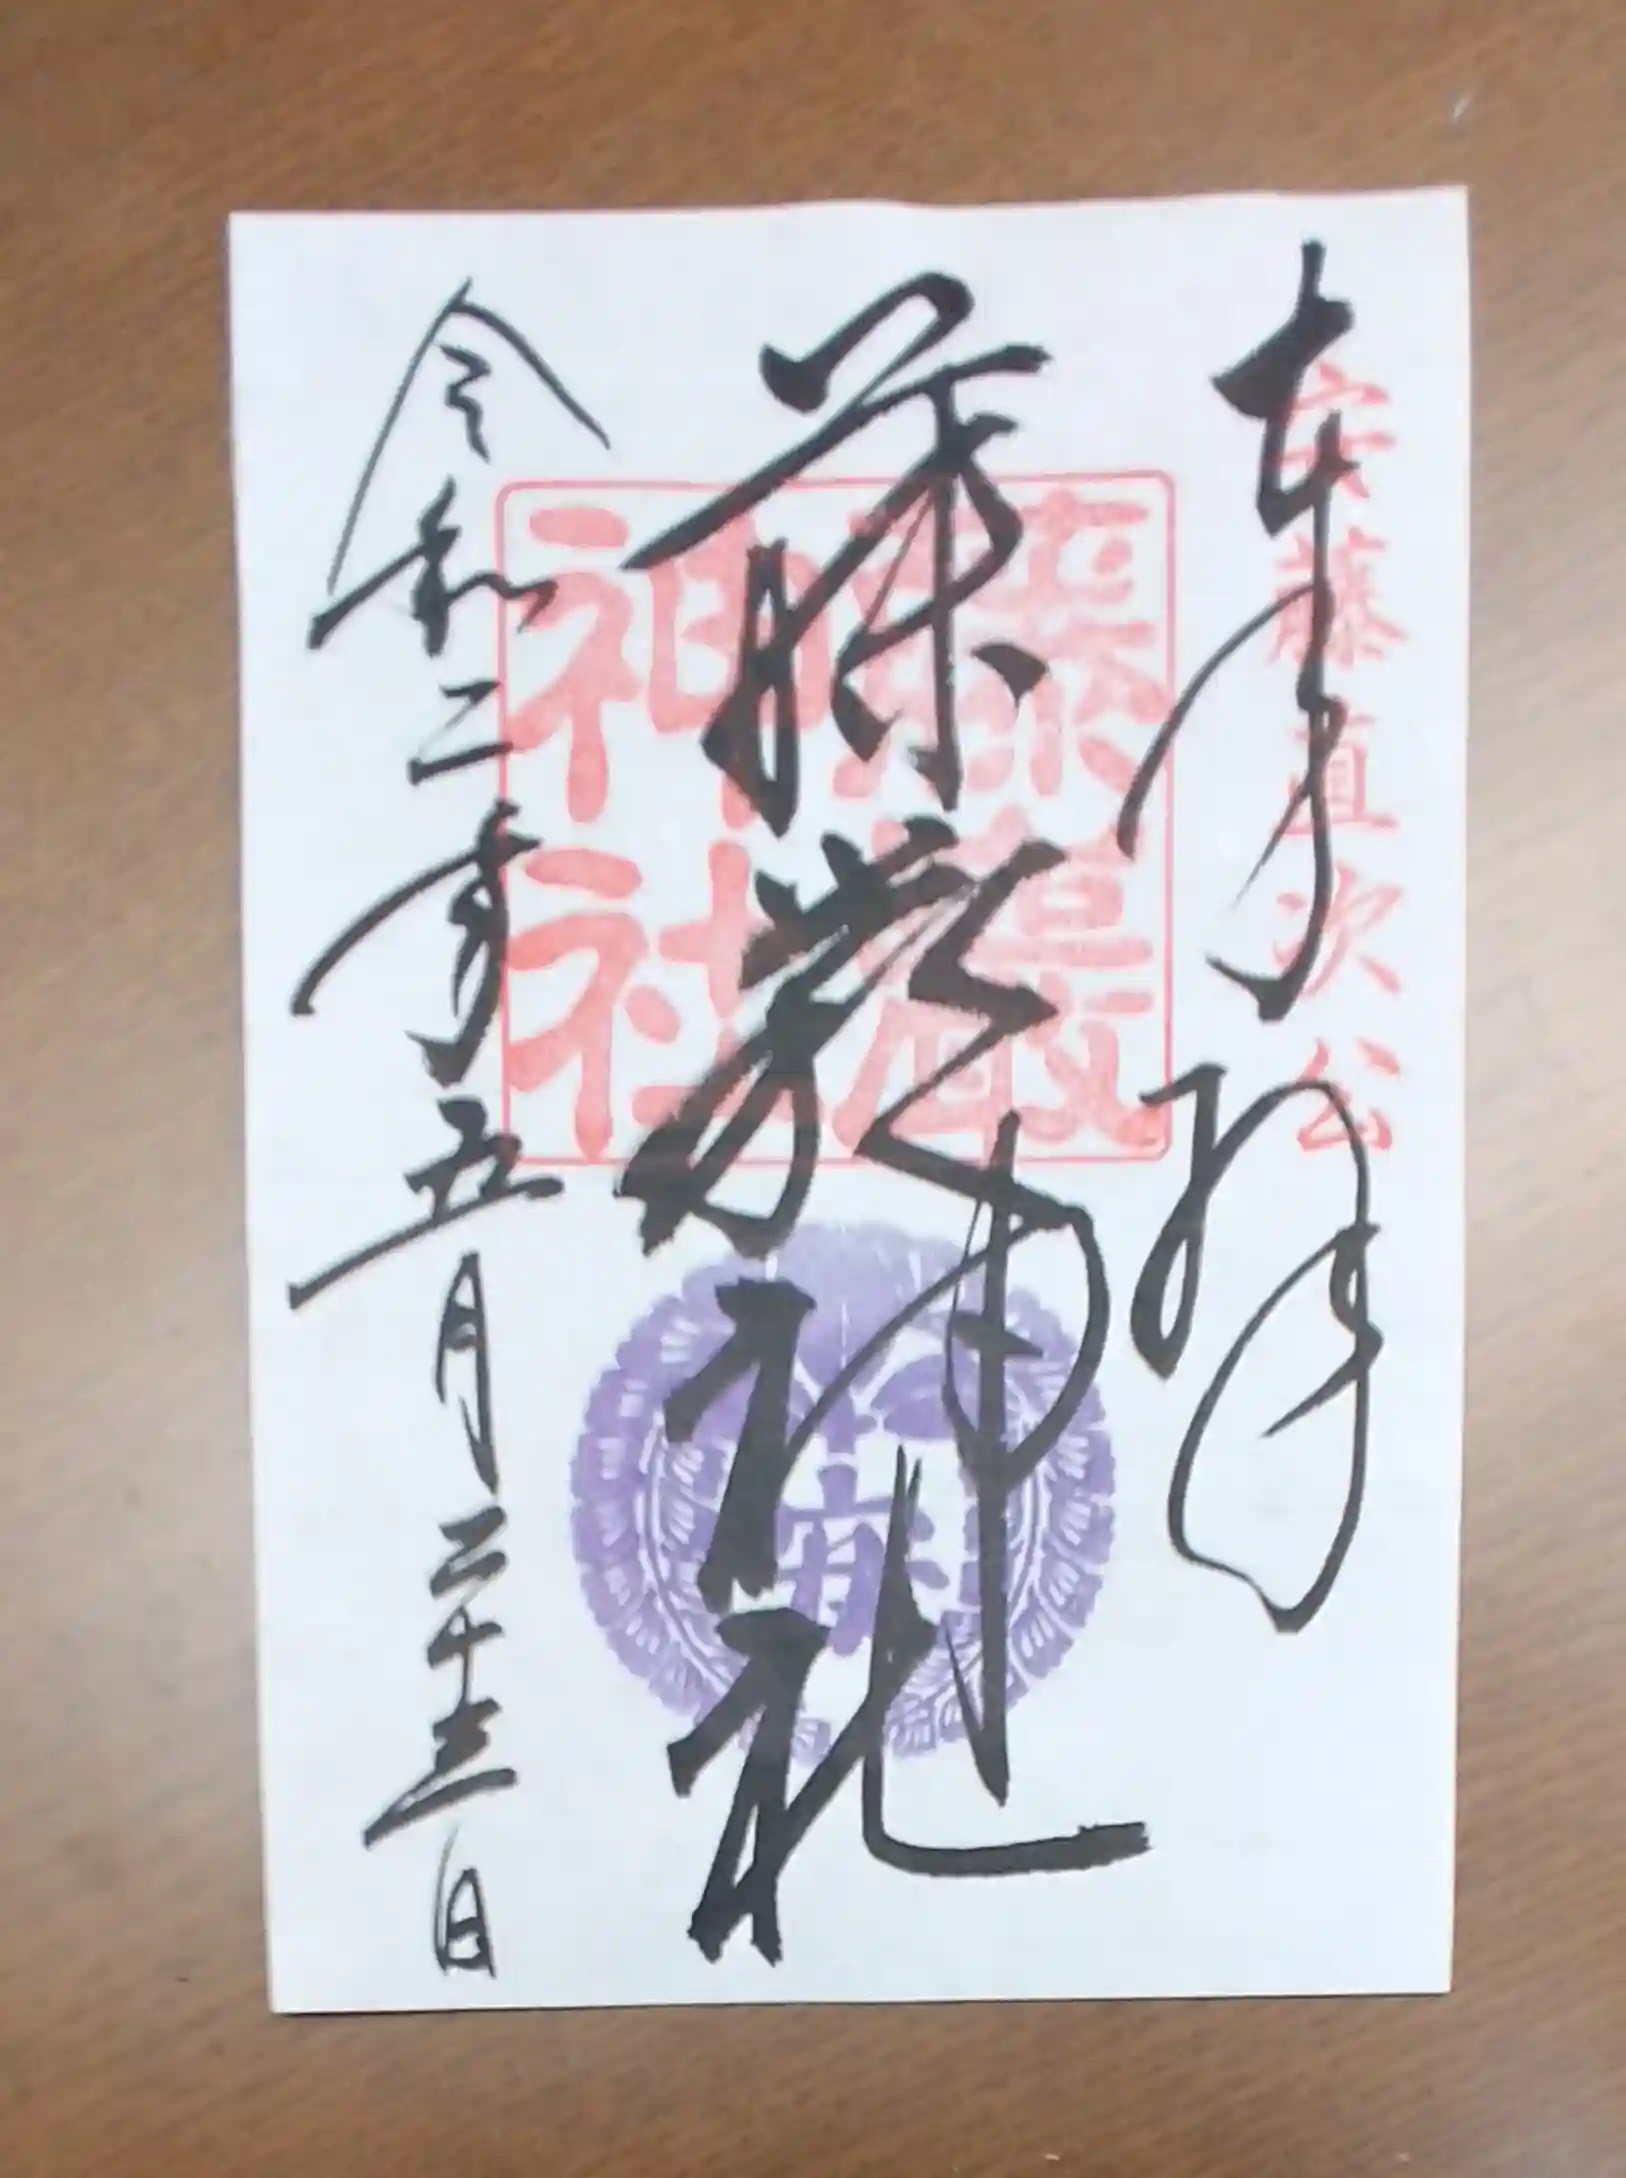 奉拝
安藤直次公
藤巖神社
藤巖神社
安藤
令和二年五月二十三日